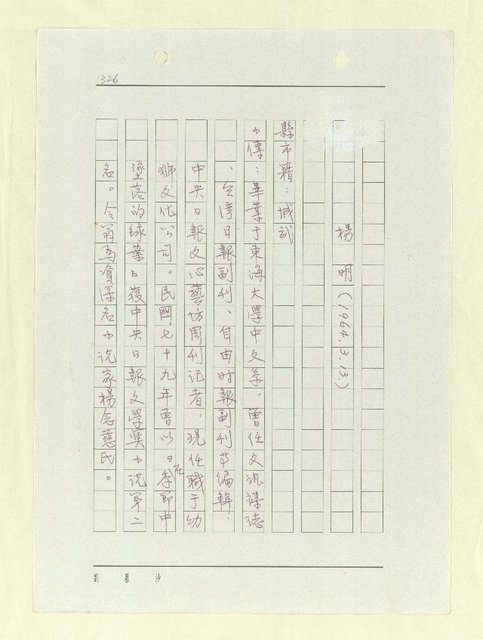 326
楊　明（1964.3.13.）
縣市籍：城武
小傳：畢業于東海大學中文系，曾任文訊雜誌
、台灣日報副刊、自由時報副刊等編輯，
中央日報文心藝坊周刊記者，現任職于幼
獅文化公司。民國七十九年曾以「在季節中
墜落的綠葉」獲中央日報文學獎小說第二
名。令翁為資深名小說家楊念慈氏。